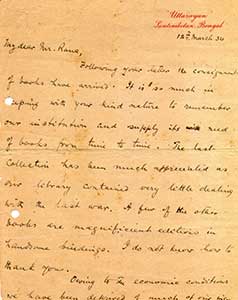 Uttarayan
Santiniketan, Bengal
12th March 34
My dear Mr. Rana,
Following your letter the consignment
of books have arrived. It is so much in
keeping with your kind nature to remember
our institution and supply its need
of books from time to time. The last
collection has been much appreciated as
our library contained very little dealing
with the last war. A few of the other
books are magnificent editions in
handsome bindings. I do not know how to
thank you.
Owing to the economic conditions
we have been deprived of much of our